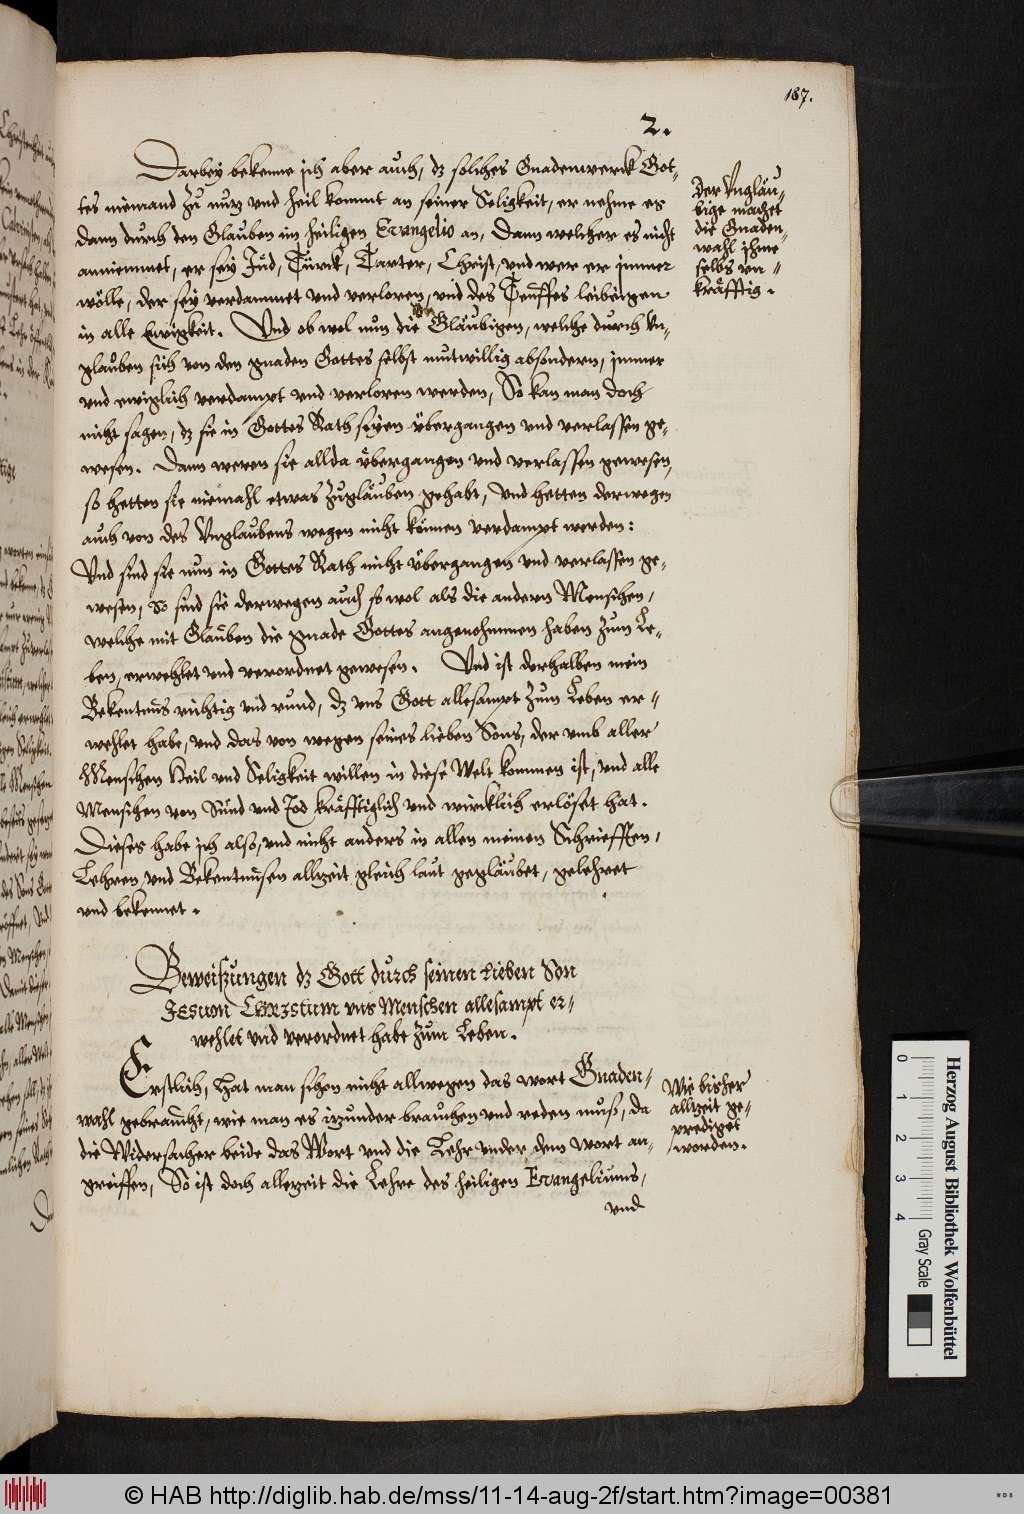 187.
2.
Darbey bekenne ich aber auch, dz solches Gnadenwerck Got-
tes niemand zu nutz vnd heil kommt an seiner Seligkeit, er nehme es
dann durch den Glauben im heiligen Evangelio an, Dann welcher es nicht
annimmet, er sey Jüd, Türck, Tarter, Christ, vnd wer er jmmer
wölle, der sey verdammet vnd verloren, vnd des Teuffes leibeigen
in alle Ewigkeit. Vnd ob wol nun die Gläubigen, welche durch Vn-
glauben sich von den gnaden Gottes selbst mutwillig absondern, jmmer
vnd ewiglich verdampt vnd verloren werden, So kan man doch
nicht sagen, dz sie in Gottes Rath seyen übergangen vnd verlassen ge-
wesen. Dann weren sie allda übergangen vnd verlassen gewesen,
so hetten sie niemahl etwas zugläuben gehabt, Vnd hetten derwegen
auch von des Vnglaubens wegen nicht können verdampt werden:
Vnd sind sie nun in Gottes Rath nicht übergangen vnd verlassen ge-
wesen, So sind sie derwegen auch so wol als die andern Menschen,
welche mit Glauben die gnade Gottes angenohmmen haben zum Le-
ben, erwehlet vnd verordnet gewesen. Vnd ist derhalben mein
Bekentnus richtig vnd rund, dz vns Gott allesampt zum Leben er-
wehlet habe, vnd das von wegen seines lieben Sons, der vmb aller
Menschen Heil vnd Seligkeit willen in diese Welt kommen ist, vnd alle
Menschen von Sünd vnd Tod kräfftiglich vnd wircklich erlöset hat.
Dieses habe ich also, vnd nicht anders in allen meinen Schriefften,
Lehren vnd Bekentnusen allzeit gleich laut gegläubet, gelehret
vnd bekennet.
Der Vngläu-
bige machet
die Gnaden-
wahl jhme
selbs vn-
kräfftig.
Beweisungen dz Gott durch seinen lieben Son
JEsum CHRIstum vns Menschen allesampt er-
wehlet vnd verordnet habe zum Leben.
Erstlich, Hat man schon nicht allwegen das wort Gnaden-
wahl gebraucht, wie man es itzunder brauchen vnd reden muß, da
die Widersacher beide das Wort vnd die Lehr vnder dem wort an-
greiffen, So ist doch allezeit die Lehre des heiligen Evangeliums,
vnd
Wie bisher
allzeit ge-
prediget
worden.
Herzog August Bibliothek Wolfenbüttel
0 1 2 3 4
Gray Scale
© HAB http://diglib.hab.de/mss/11-14-aug-2f/start.htm?image=00381